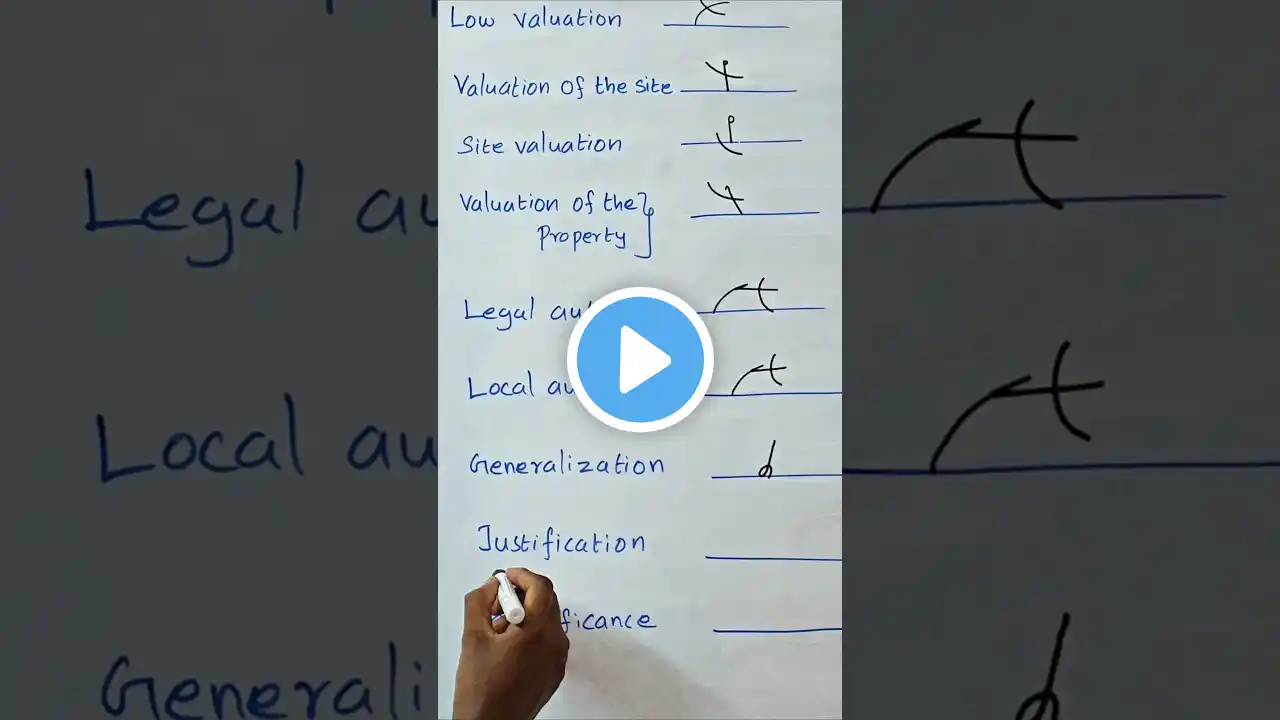 Low valuation
Valuation of the site
Site valuation
Valuation of the
Property
Legal
Local
Generalization
Justification
Legal
Local